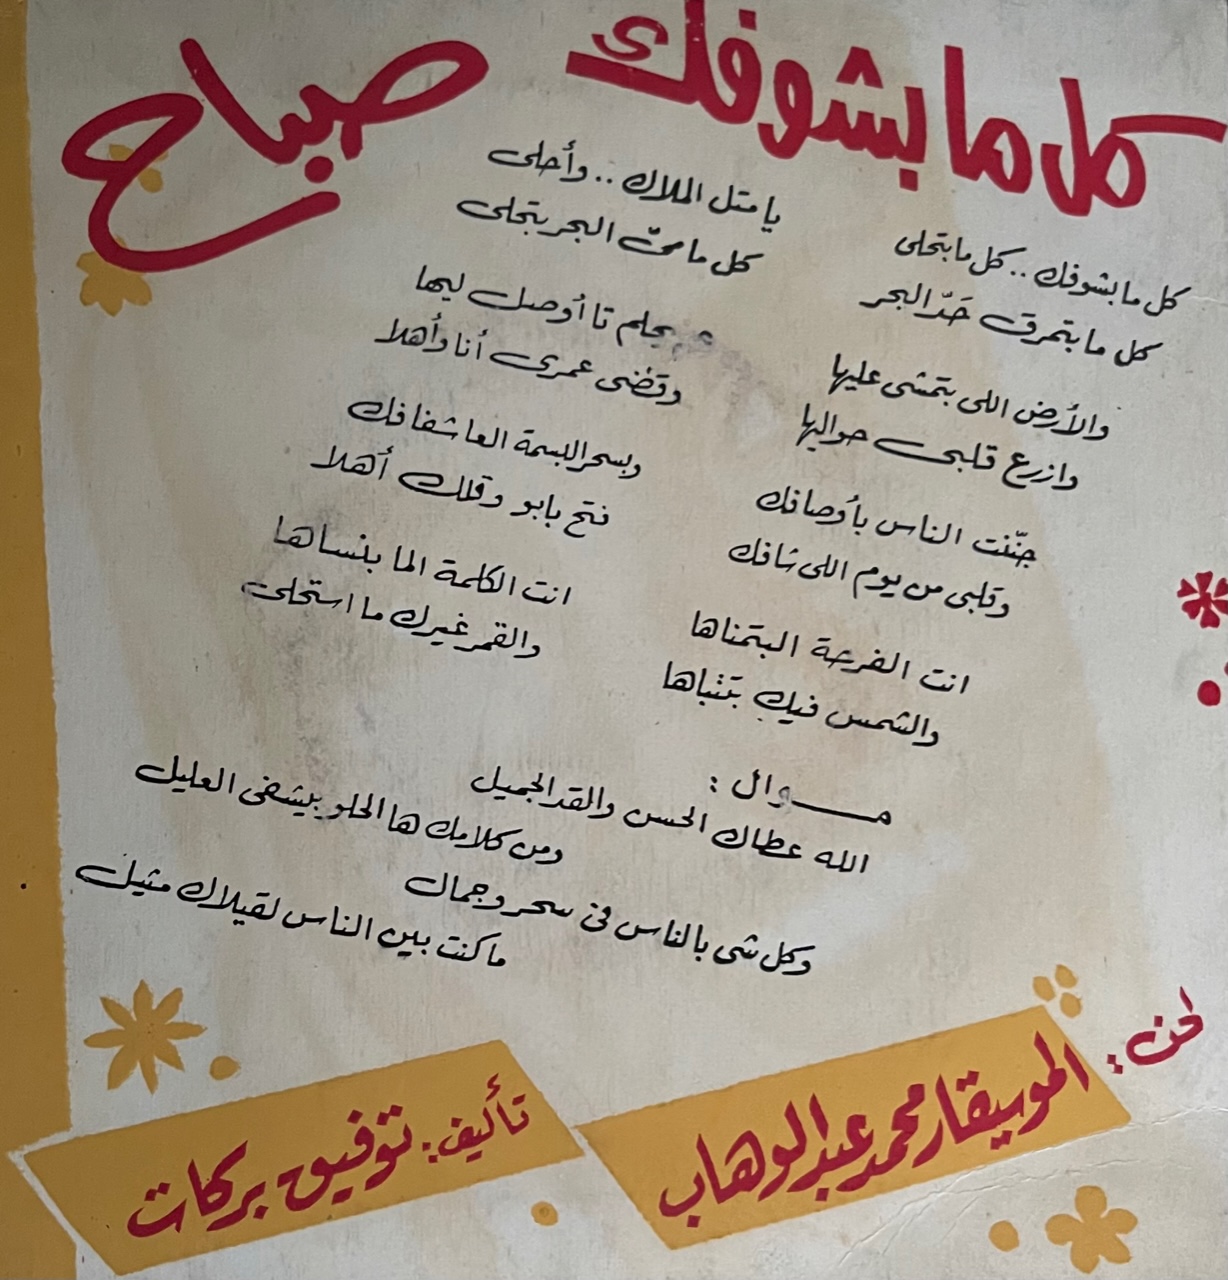 كل ما بشوفك
صباح
كل ما بشوفك .. كل ما بتحلى
يا متل الملاك .. وأحلى
كل ما بتمرق حَدّ البحر
كل ما ميّ البحر بتحلى
والأرض اللى بتمشى عليها
بحلم تا أوصل ليها
وازرع قلبى حواليها
وقضى عمرى أنا وأهلا
جنّنت الناس بأوصافك
وبسحر البسمة العا شفافك
وقلبى من يوم اللى شافك
فتح بابو وقلك أهلا
انت الفرحة البتمناها
انت الكلمة الما بنساها
والشمس فيك بتتباها
والقمر غيرك ما استحلى
مــوال :
الله عطاك الحسن والقد الجميل
ومن كلامك ها الحلو بيشفى العليل
وكل شى بالناس فى سحر وجمال
ما كنت بين الناس لقيلاك مثيل
لحن :
الموسيقار محمد عبد الوهاب
تأليف : توفيق بركات